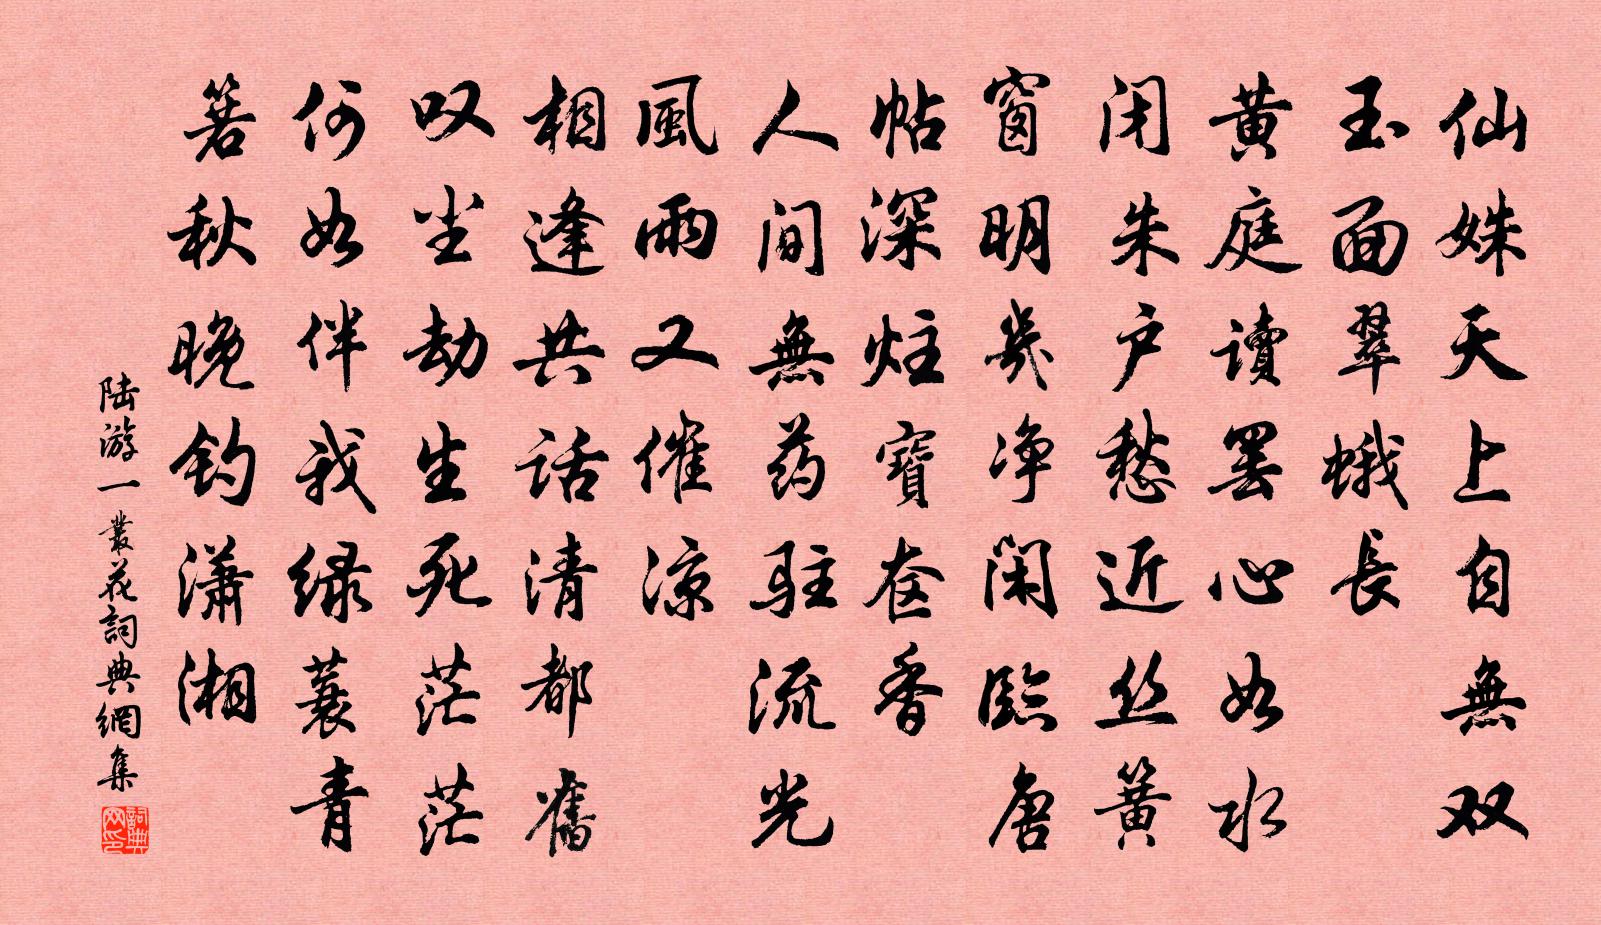 仙姝天上自無双
玉面翠蛾長
黄庭讀罢心如水
闭朱户愁近丝簧
窗明幾净闲臨唐
帖深炷寶奁香
人间無药駐流光
風雨又催凉
相逢共话清都舊
叹尘劫生死茫茫
何如伴我绿蓑青
箬秋晚钓潇湘
陆游一叢花詞典網集
詞典网印